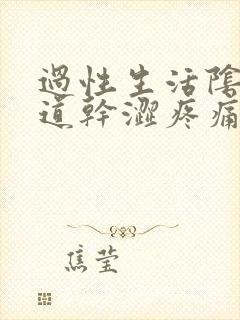 過性生活陰
道幹澀疼痛
焦瑩